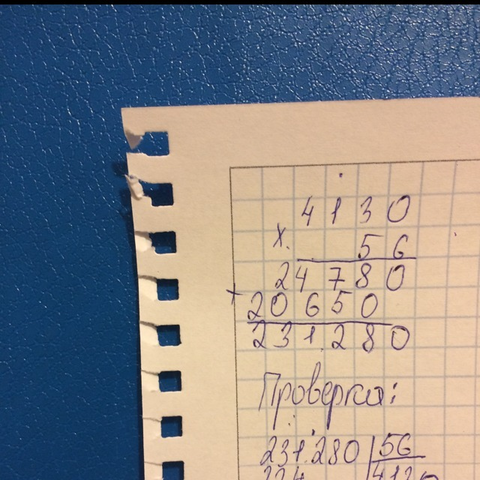 4130
x 56
24780
+ 20650
231.280
Проверка:
231.280 | 56
224 4130